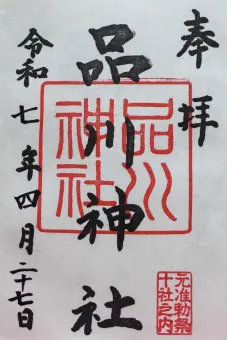 奉拝
品川神社
品川神社
元准勅祭
十社之内
令和七年四月二十七日